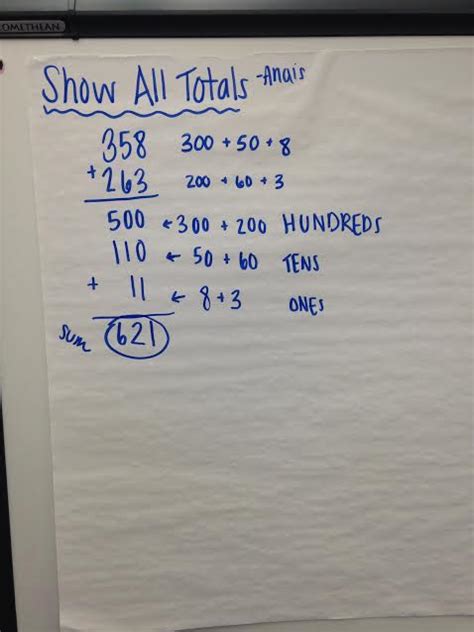 PROMETHEAN
Show All Totals -Anais
358 300 + 50 + 8
+ 263 200 + 60 + 3
500 ← 300 + 200 HUNDREDS
110 ← 50 + 60 TENS
+ 11 ← 8 + 3 ONES
sum 621